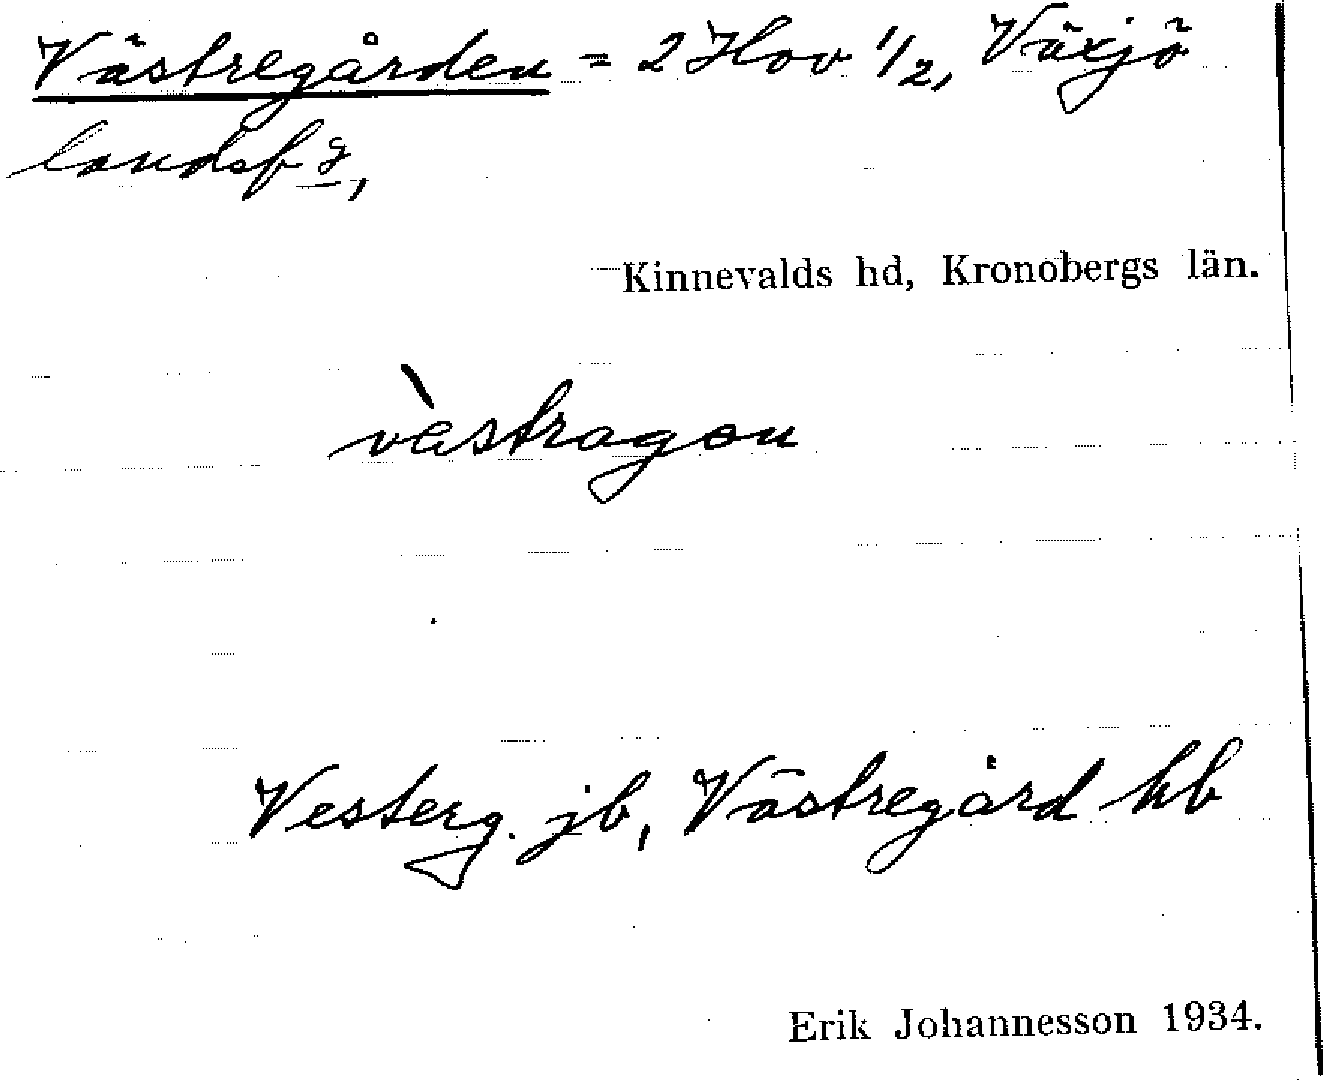 Västregården = 2 Hov 1/2, Växjö
landsf g,
Kinnevalds hd, Kronobergs län.
vàstragon
Vesterg. jb, Västregård hb
Erik Johannesson 1934.